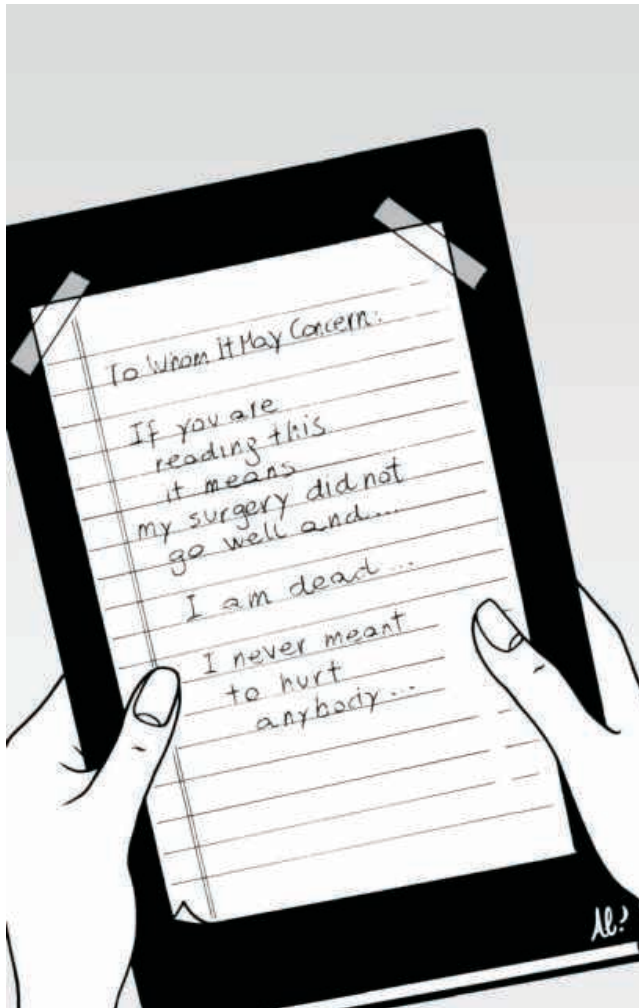 To Whom It May Concern:
If you are
reading this
it means
my surgery did not
go well and...
I am dead...
I never meant
to hurt
anybody...